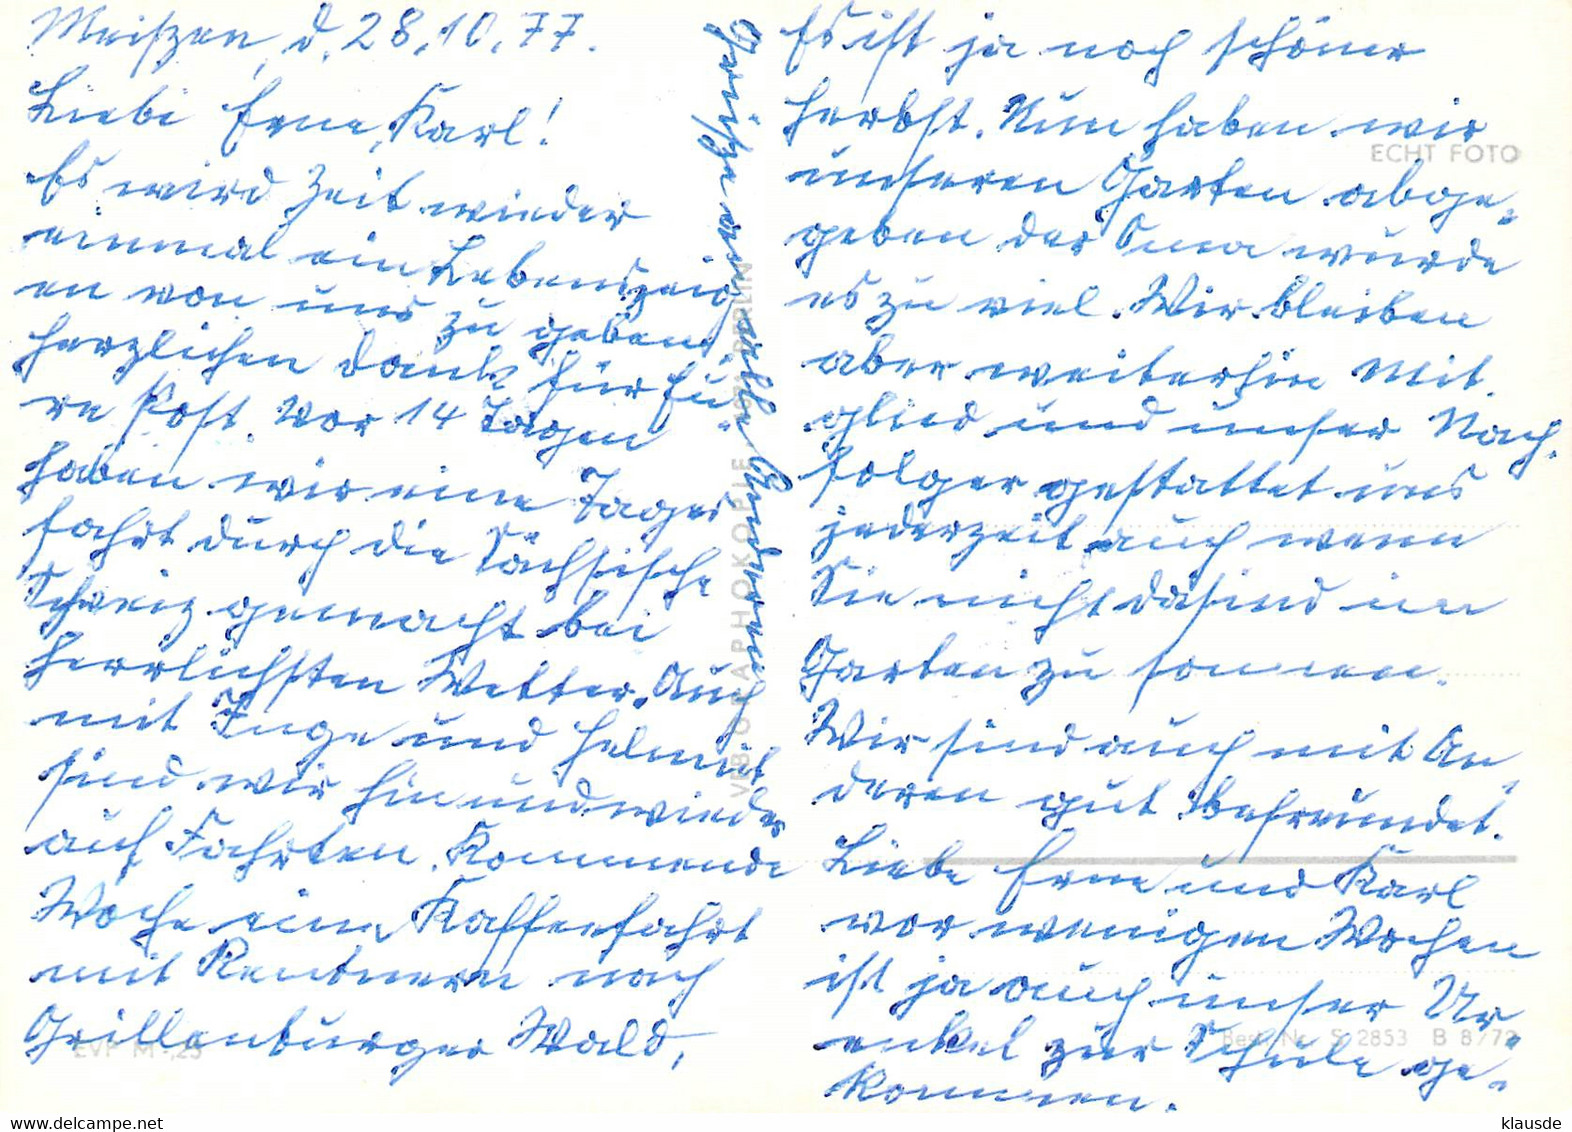 Meißen, d. 28.10.77.
Liebe Erne, Karl!
Es wird Zeit wieder
einmal ein Lebenszeich
en von uns zu geben.
Herzlichen Dank für Eu-
re Post. Vor 14 Tagen
haben wir eine Tages
fahrt durch die Sächsische
Schweiz gemacht bei
herrlichsten Wetter. Auch
mit Inge und Helmut
sind wir hin und wieder
auf Fahrten. Kommende
Woche eine Kaffeefahrt
mit Rentnern nach
Grillenburger Wald,
Es ist ja noch schöner
Herbst. Nun haben wir
unseren Garten abge-
geben der Oma wurde
es zu viel. Wir bleiben
aber weiterhin Mit-
glied und unser Nach-
folger gestattet uns
jederzeit auch wenn
Sie nicht da sind im
Garten zu sonnen.
Wir sind auch mit An-
deren gut befreundet.
Liebe Erne und Karl
vor wenigen Wochen
ist ja auch unser Ur-
enkel zur Schule ge-
kommen.
Grüße an alle
VEB BERLIN
ECHT FOTO
EVP M -,25
Best.-Nr. S 2853 B 8/72
klausde